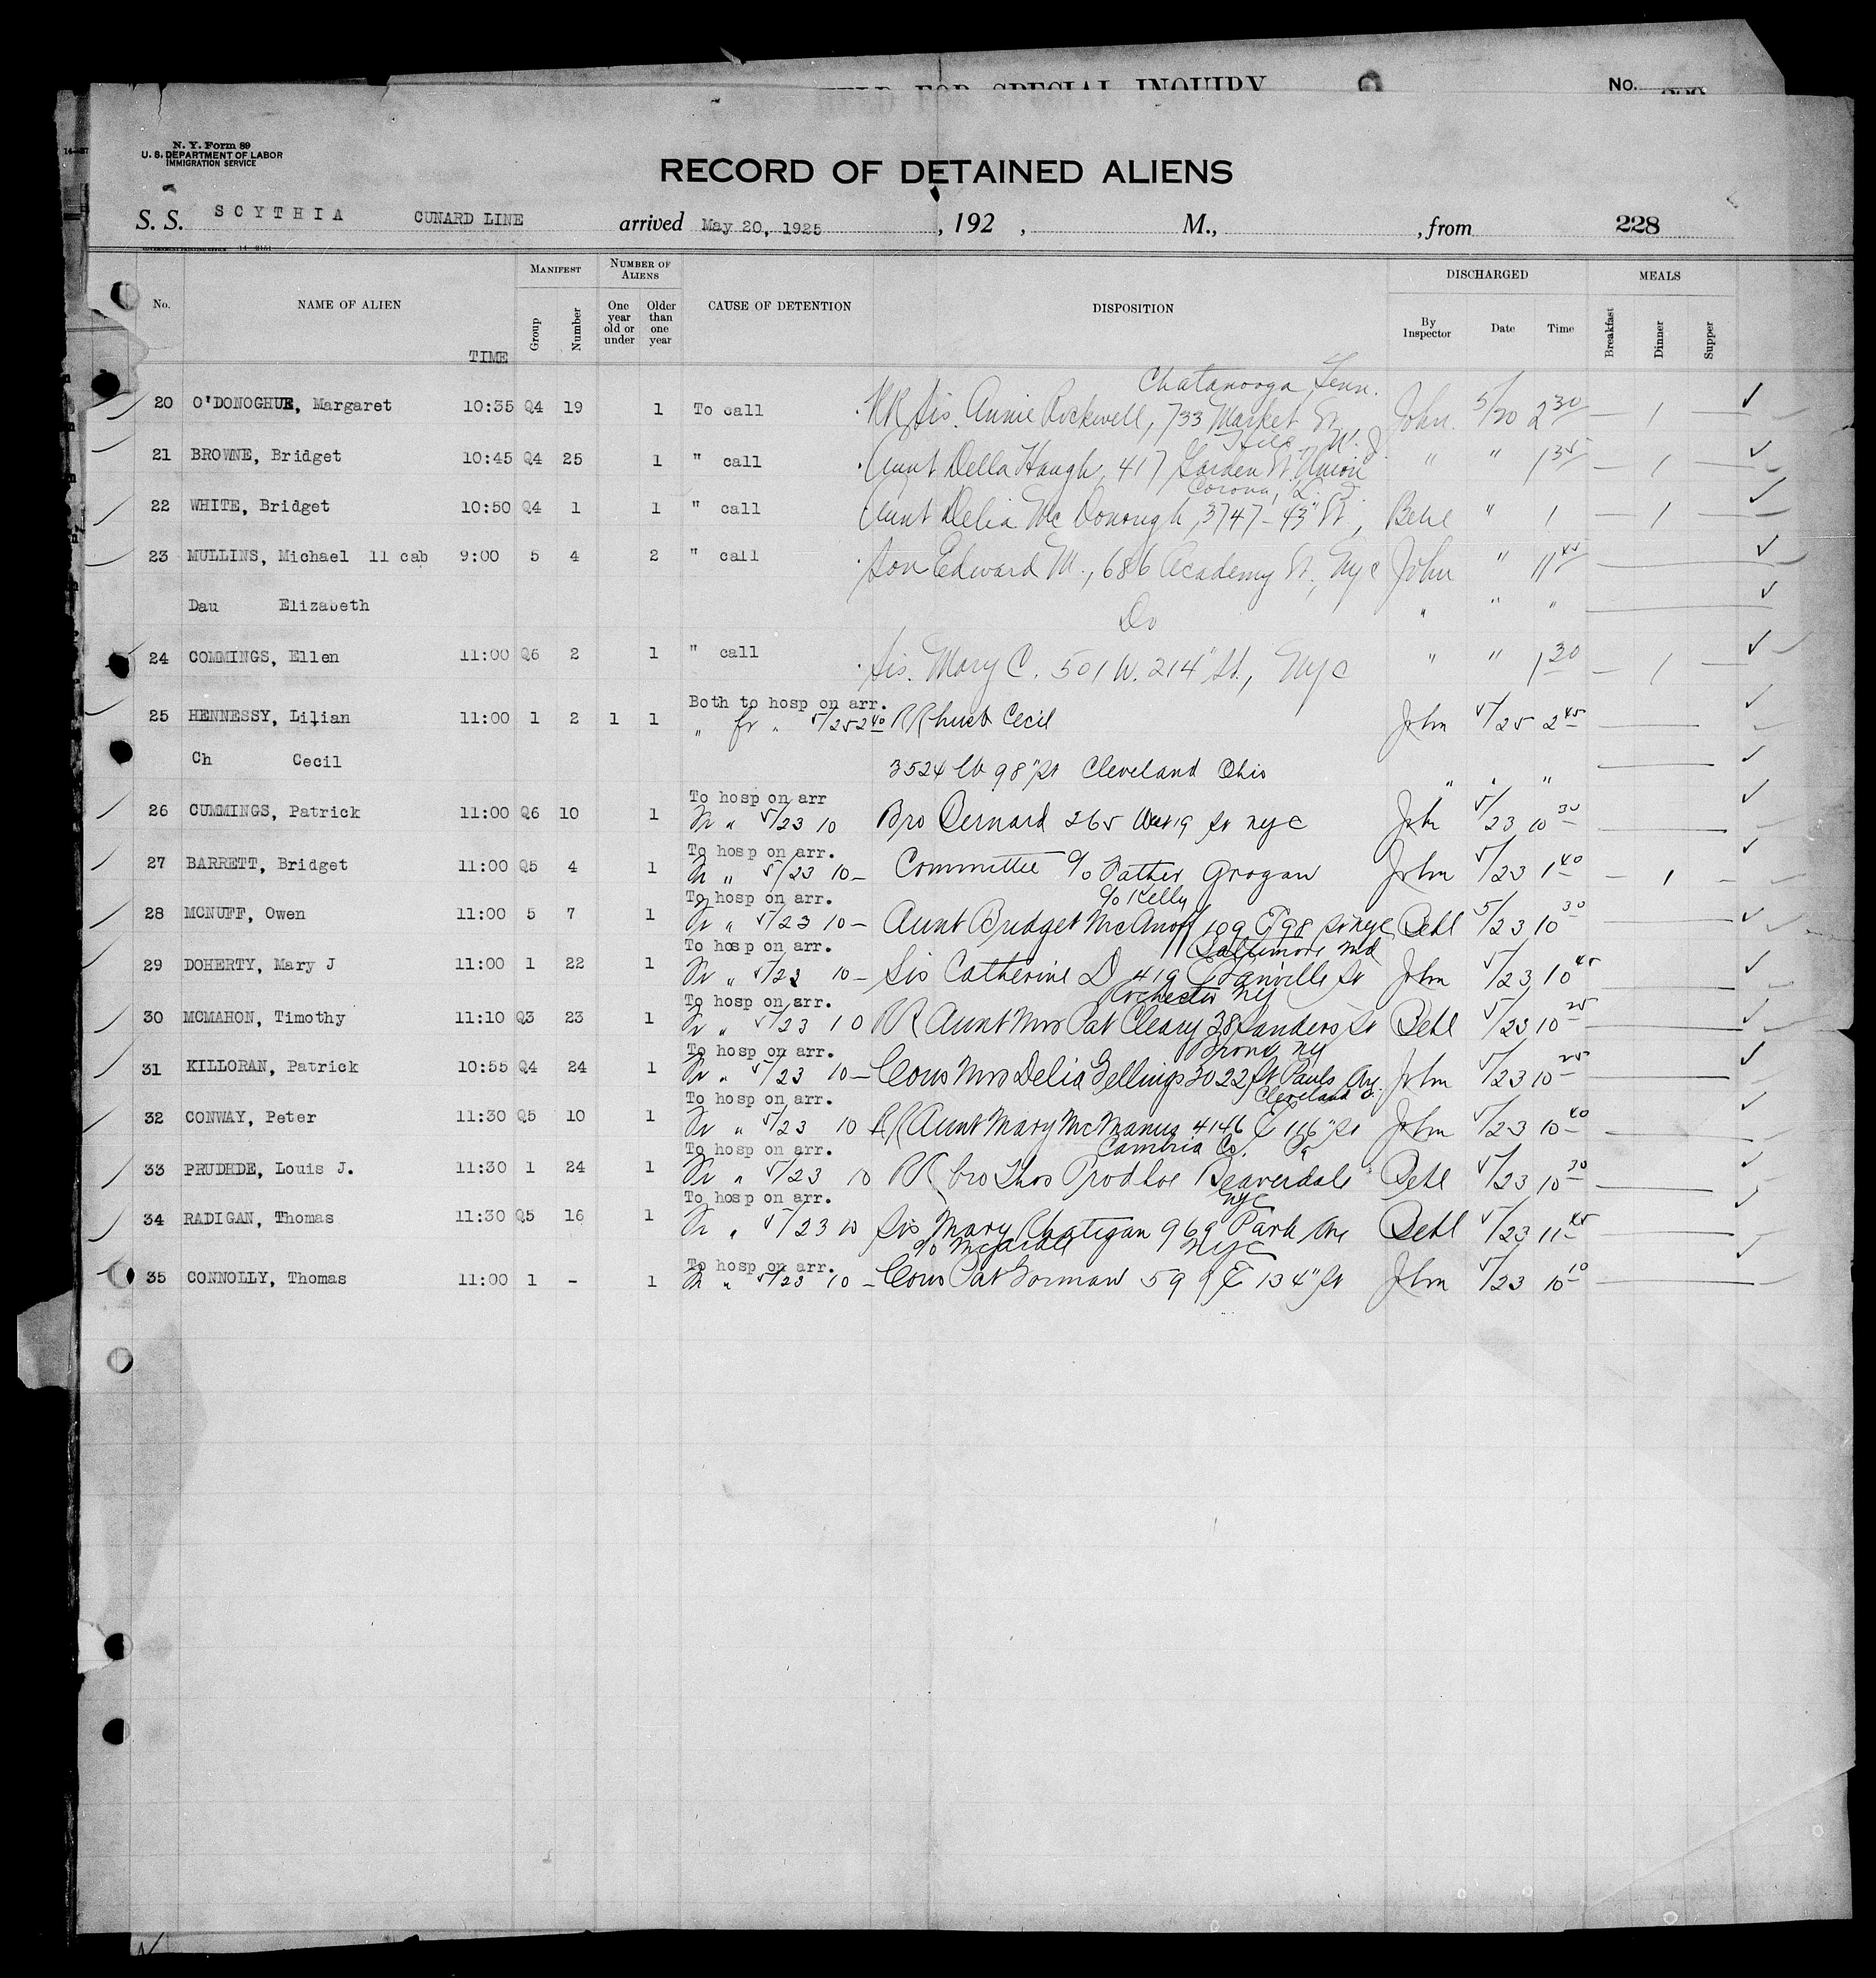 HELD FOR SPECIAL INQUIRY No.
N. Y. Form 89
U. S. DEPARTMENT OF LABOR
IMMIGRATION SERVICE
RECORD OF DETAINED ALIENS
S. S. SCYTHIA CUNARD LINE arrived May 20, 1925, 192 , M., , from 228
MANIFEST NUMBER OF ALIENS DISCHARGED MEALS
No. NAME OF ALIEN TIME Group Number One year old or under Older than one year CAUSE OF DETENTION DISPOSITION By Inspector Date Time Breakfast Dinner Supper
Chatanooga Tenn.
20 O'DONOGHUE, Margaret 10:35 Q4 19 1 To call RR Sis. Annie Rockwell, 733 Market St John. 5/20 2 30 — 1 —
N. J.
21 BROWNE, Bridget 10:45 Q4 25 1 " call Aunt Della Haugh, 417 Garden St. Union " " 1 35 — 1 —
Corona, L. I.
22 WHITE, Bridget 10:50 Q4 1 1 " call Aunt Delia Mc Donough, 3747 - 43" St, Behl " 1 — 1 —
23 MULLINS, Michael 11 cab 9:00 5 4 2 " call Son Edward M., 686 Academy St, Nyc John " 11 45
Dau Elizabeth Do " " "
24 COMMINGS, Ellen 11:00 Q6 2 1 " call Sis. Mary C. 501 W. 214" St., Nyc " " 1 30 — 1 —
Both to hosp on arr.
25 HENNESSY, Lilian 11:00 1 2 1 1 " fr " 5/25 2 40 RR husb Cecil John 5/25 2 45
Ch Cecil 3524 W 98" St Cleveland Ohio " " "
To hosp on arr
26 CUMMINGS, Patrick 11:00 Q6 10 1 Fr " 5/23 10 Bro Bernard 265 West 19 St nyc John 5/23 10 30
To hosp on arr.
27 BARRETT, Bridget 11:00 Q5 4 1 Fr " 5/23 10 — Committee c/o Father Grogan John 5/23 1 40 — 1 —
To hosp on arr. c/o Kelly
28 MCNUFF, Owen 11:00 5 7 1 Fr " 5/23 10 — Aunt Bridget McAnoff 109 E 98 St nyc Behl 5/23 10 30
To hosp on arr. Baltimore Md
29 DOHERTY, Mary J 11:00 1 22 1 Fr " 5/23 10 — Sis Catherine D 419 St John 5/23 10 45
To hosp on arr. Rochester NY
30 MCMAHON, Timothy 11:10 Q3 23 1 Fr " 5/23 10 RR Aunt Mrs Pat Cleary 38 Sanders St Behl 5/23 10 25
To hosp on arr. Bronx NY
31 KILLORAN, Patrick 10:55 Q4 24 1 Fr " 5/23 10 — Cous Mrs Delia Gellings 3022 St Pauls Av. John 5/23 10 25
To hosp on arr. Cleveland O.
32 CONWAY, Peter 11:30 Q5 10 1 Fr " 5/23 10 RR Aunt Mary McManus 4146 E 116" St John 5/23 10 40
To hosp on arr. Cambria Co. Pa
33 PRUDHDE, Louis J. 11:30 1 24 1 Fr " 5/23 10 RR bro Thos Prodhoe Beaverdale Behl 5/23 10 30
To hosp on arr. nyc
34 RADIGAN, Thomas 11:30 Q5 16 1 Fr " 5/23 10 Sis Mary Rhatigan 969 Park Ave Behl 5/23 11 45
To hosp on arr. c/o NYC
35 CONNOLLY, Thomas 11:00 1 - 1 Fr " 5/23 10 — Cous Pat Gorman 599 E 134" St John 5/23 10 10